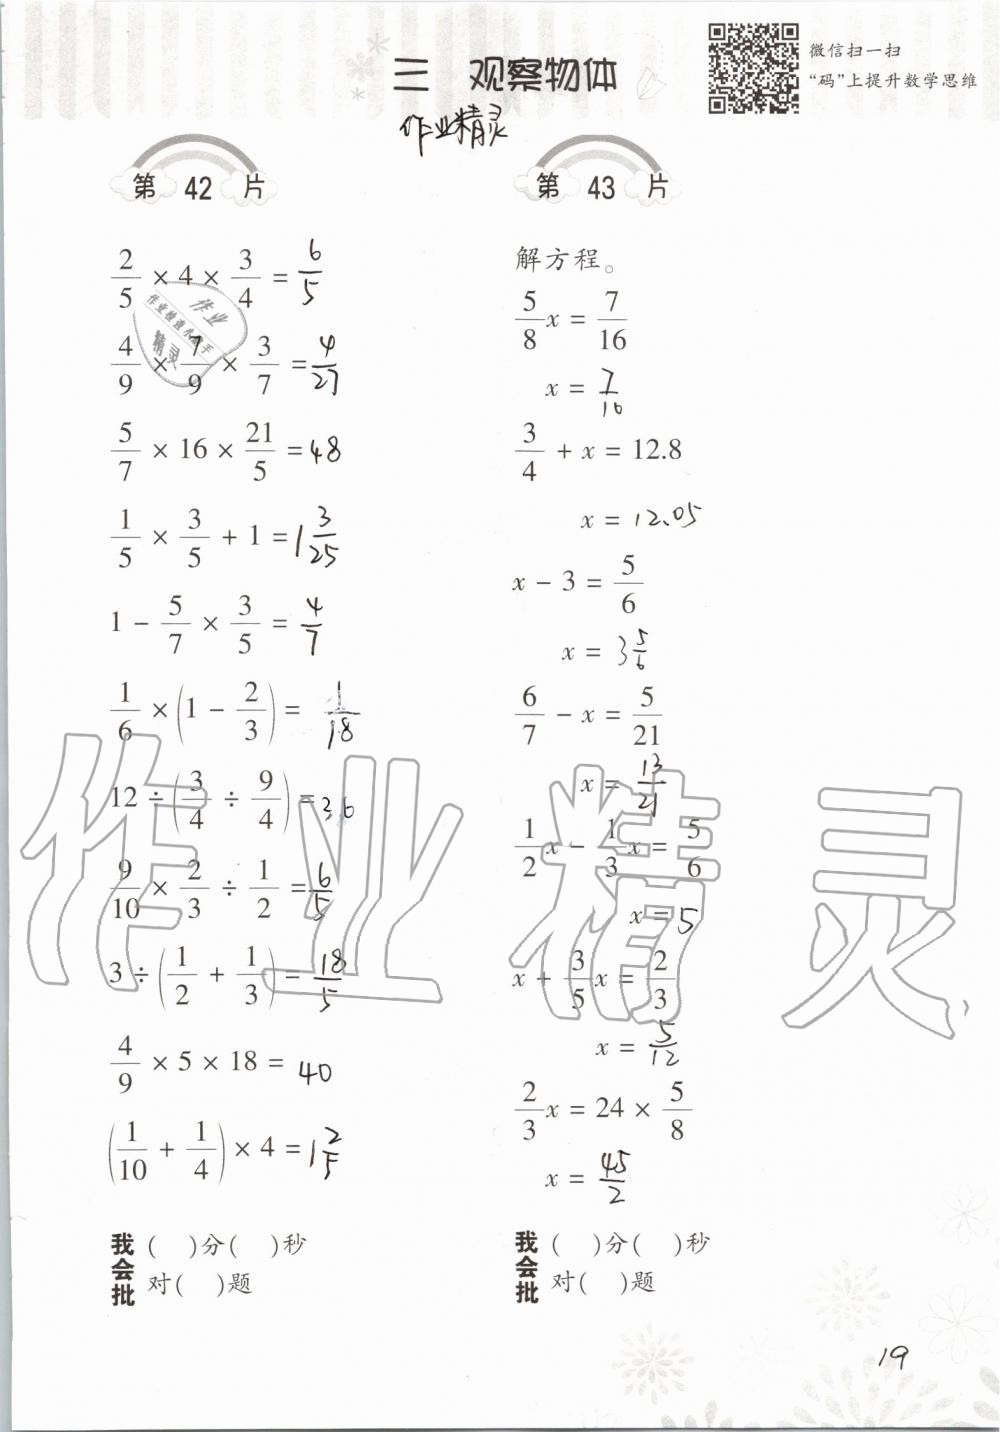 三 观察物体
微信扫一扫
“码”上提升数学思维
作业精灵
第 42 片
2/5 × 4 × 3/4 = 6/5
4/9 × 7/9 × 3/7 = 4/27
5/7 × 16 × 21/5 = 48
1/5 × 3/5 + 1 = 1 3/25
1 - 5/7 × 3/5 = 4/7
1/6 × (1 - 2/3) = 1/18
12 ÷ (3/4 ÷ 9/4) = 36
9/10 × 2/3 ÷ 1/2 = 6/5
3 ÷ (1/2 + 1/3) = 18/5
4/9 × 5 × 18 = 40
(1/10 + 1/4) × 4 = 1 2/5
我会批
( )分( )秒
对( )题
第 43 片
解方程。
5/8 x = 7/16
x = 7/10
3/4 + x = 12.8
x = 12.05
x - 3 = 5/6
x = 3 5/6
6/7 - x = 5/21
x = 13/21
1/2 x - 1/3 x = 5/6
x = 5
x + 3/5 x = 2/3
x = 5/12
2/3 x = 24 × 5/8
x = 45/2
我会批
( )分( )秒
对( )题
作业精灵
作业
作业检查小助手
精灵
19